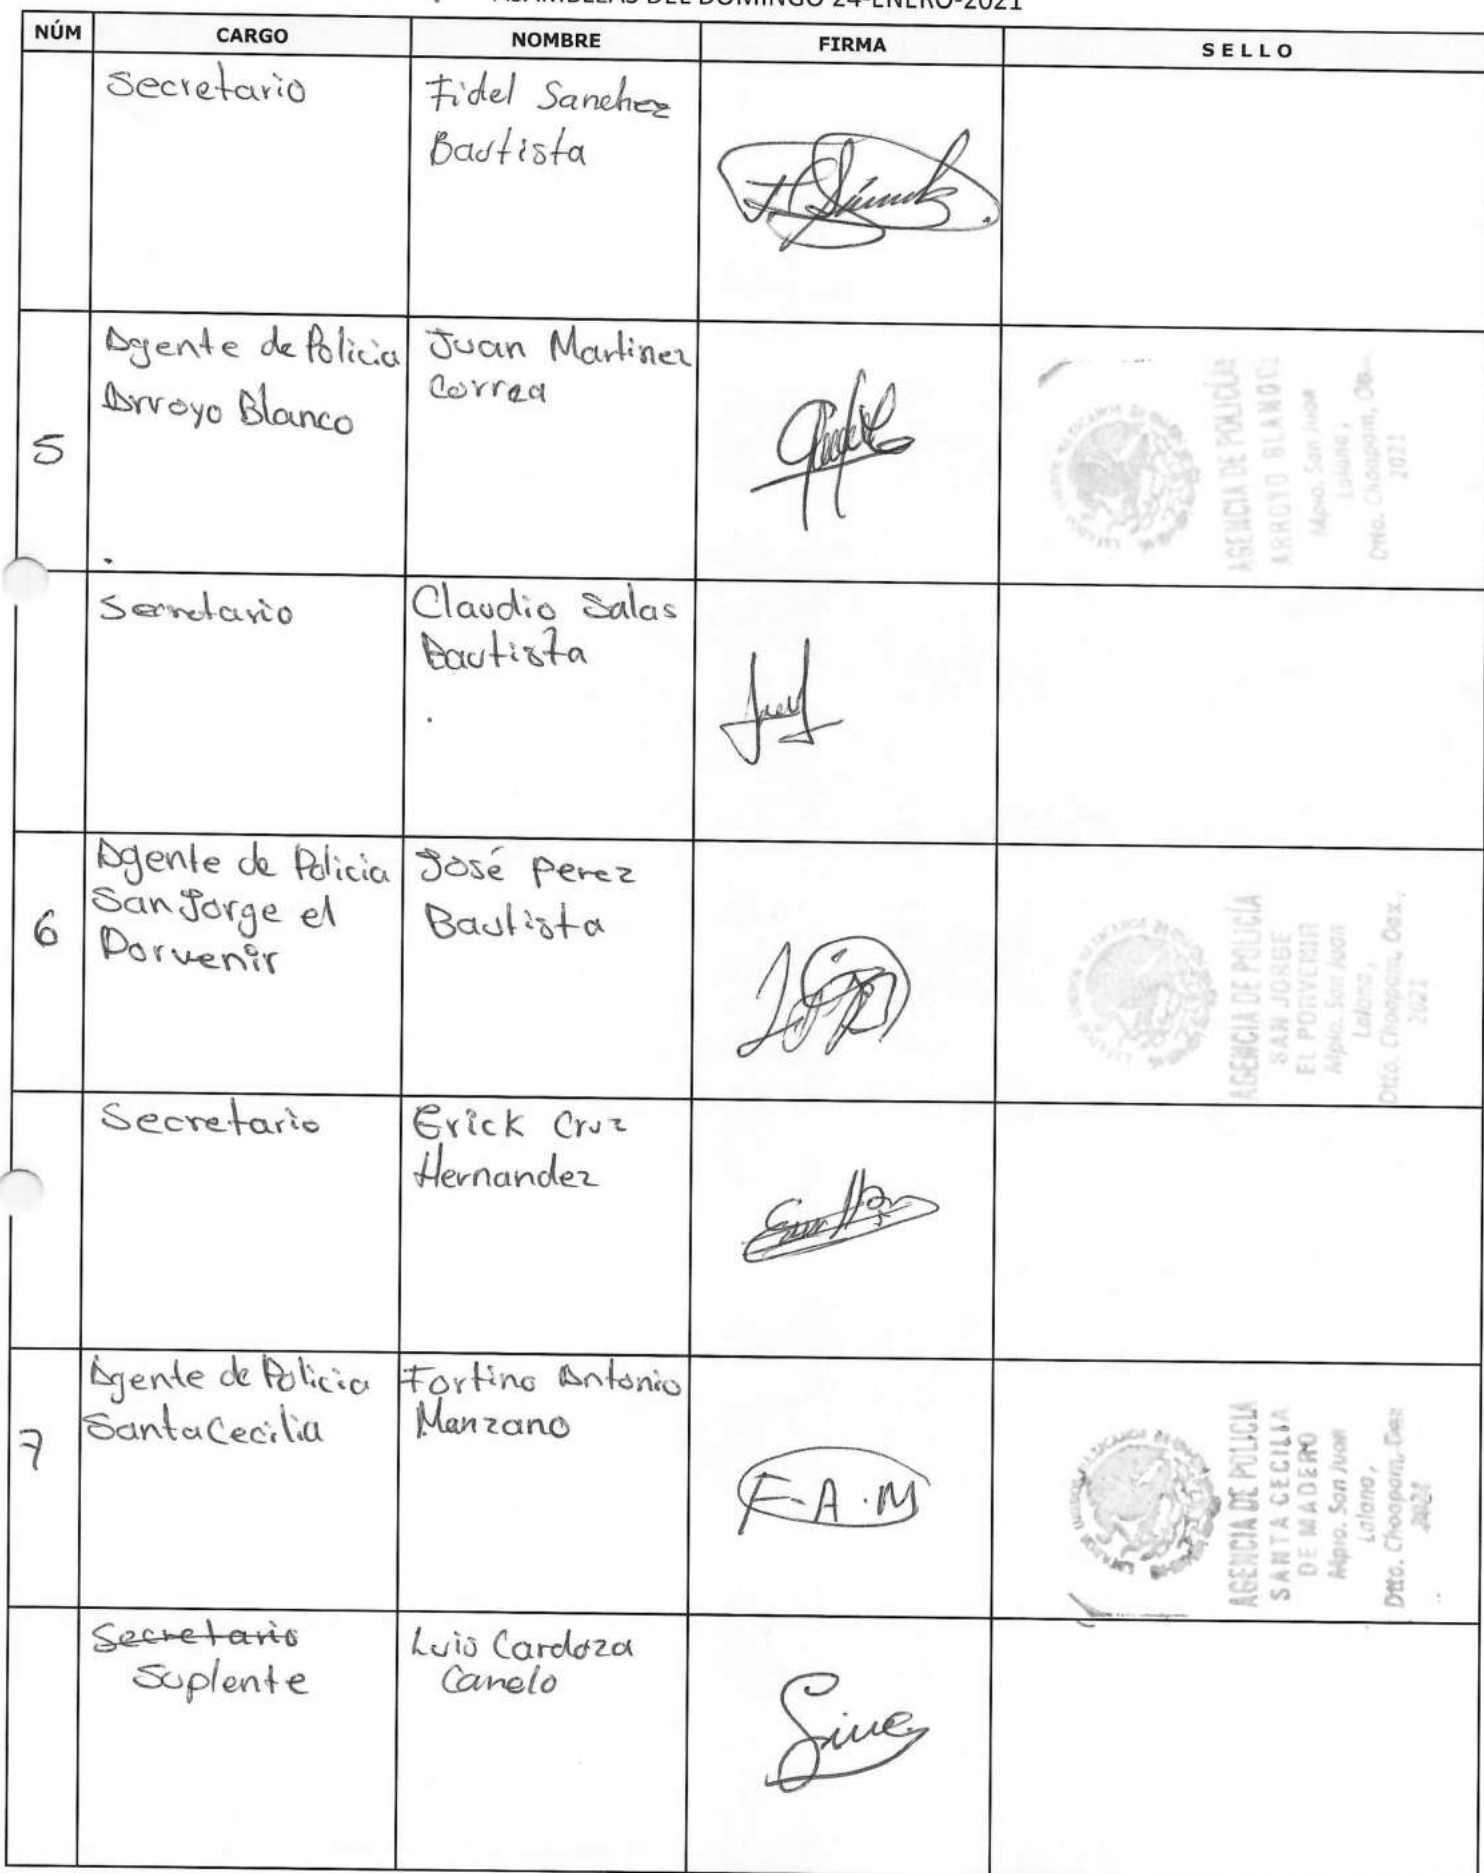 ASAMBLEAS DEL DOMINGO 24-ENERO-2021
NÚM CARGO NOMBRE FIRMA SELLO
Secretario Fidel Sanchez
Bautista
5 Agente de Policia Juan Martinez
Arroyo Blanco Correa
AGENCIA DE POLICÍA
ARROYO BLANCO
Mpio. San Juan
Lalana,
Dtto. Choapam,
2021
Secretario Claudio Salas
Bautista
6 Agente de Policia José Perez
San Jorge el Bautista
Porvenir
AGENCIA DE POLICÍA
SAN JORGE
EL PORVENIR
Mpio. San Juan
Lalana,
Dtto. Choapam, Oax.
2021
Secretario Erick Cruz
Hernandez
7 Agente de Policia Fortino Antonio
Santa Cecilia Manzano
F-A.M
ESTADOS UNIDOS MEXICANOS
AGENCIA DE POLICIA
SANTA CECILIA
DE MADERO
Mpio. San Juan
Lalana,
Dtto. Choapam, Oax
2021
Secretario Luis Cardoza
Suplente Canelo